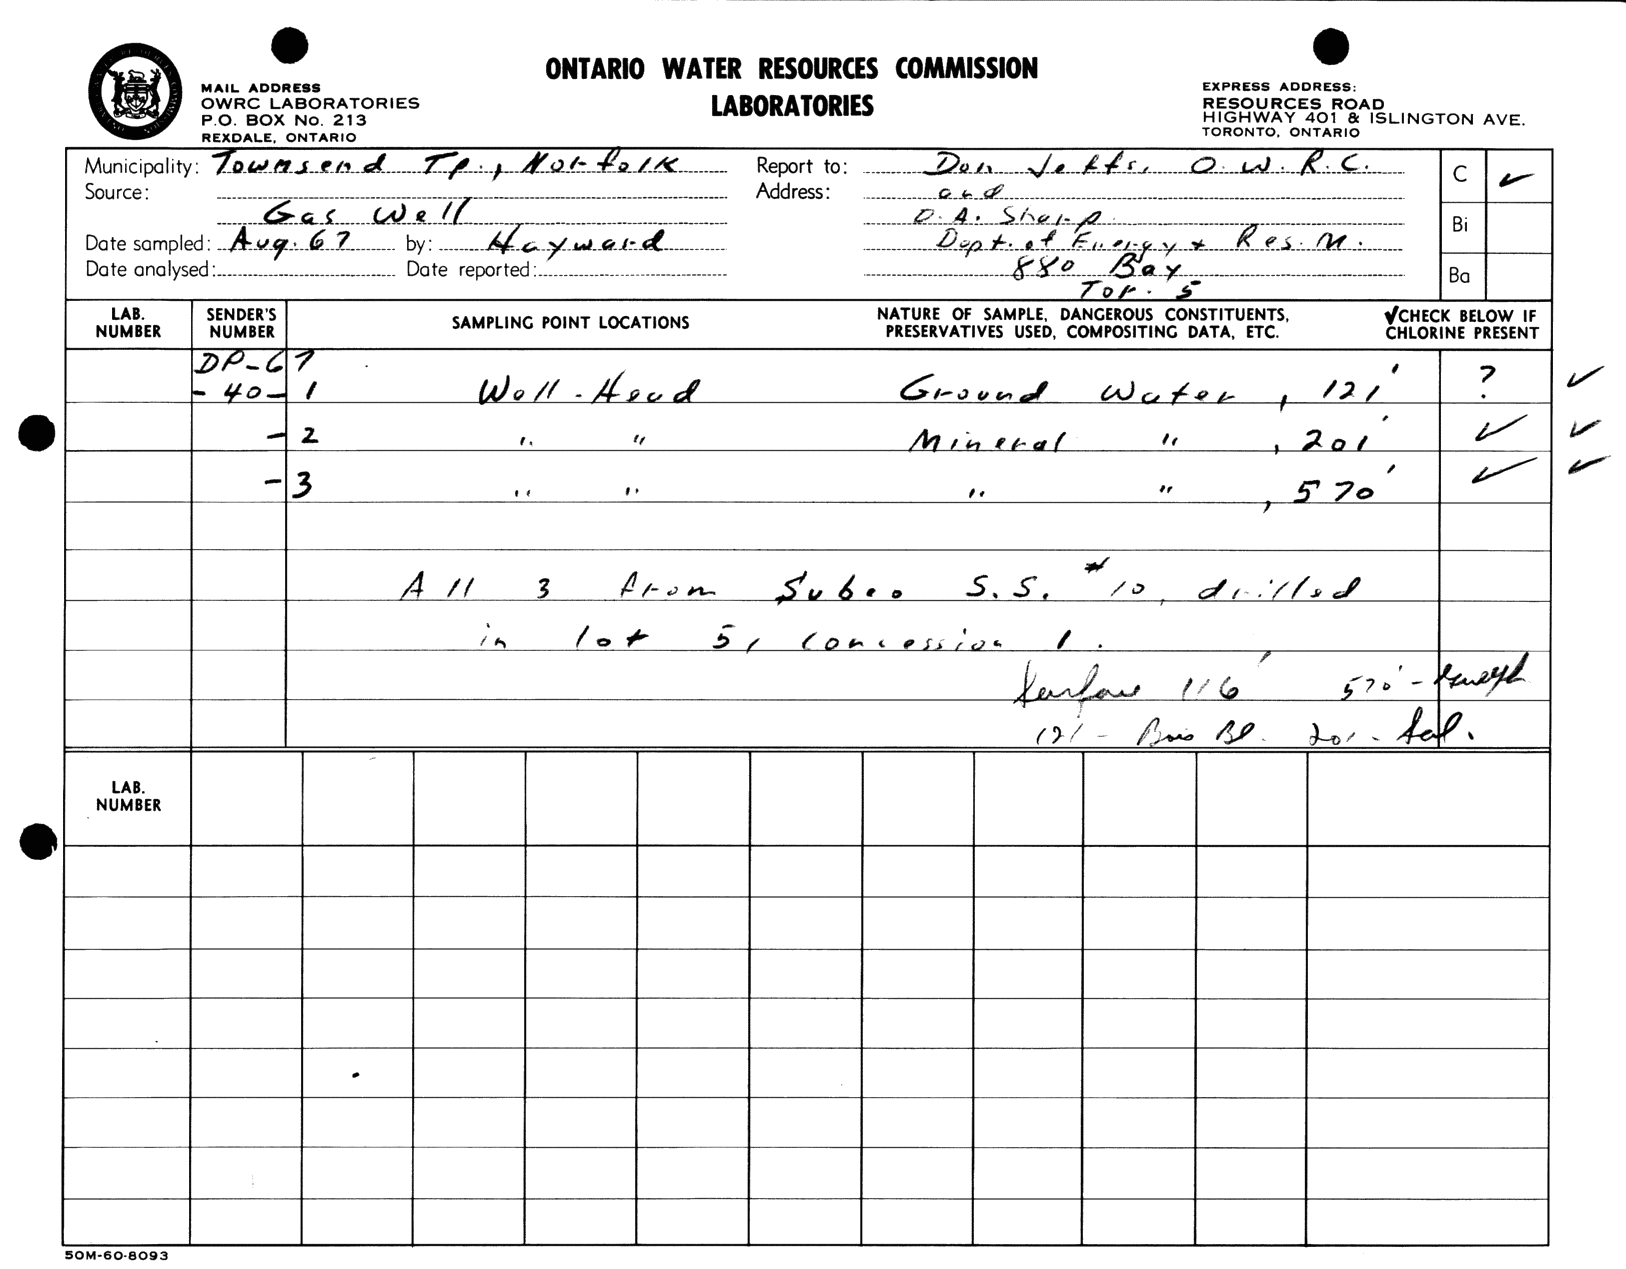 ONTARIO WATER RESOURCES COMMISSION
LABORATORIES
MAIL ADDRESS
OWRC LABORATORIES
P.O. BOX No. 213
REXDALE, ONTARIO
EXPRESS ADDRESS:
RESOURCES ROAD
HIGHWAY 401 & ISLINGTON AVE.
TORONTO, ONTARIO
Municipality: Townsend Tp., Norfolk
Source:
Gas Well
Date sampled: Aug. 67 by: Hayward
Date analysed: Date reported:
Report to: Don Jeffs, O.W.R.C.
Address: and
D.A. Sharp
Dept. of Energy + Res. M.
880 Bay
Tor. 5
C ✓
Bi
Ba
LAB. NUMBER SENDER'S NUMBER SAMPLING POINT LOCATIONS NATURE OF SAMPLE, DANGEROUS CONSTITUENTS, PRESERVATIVES USED, COMPOSITING DATA, ETC. ✓CHECK BELOW IF CHLORINE PRESENT
DP-67
-40-1 Well-Head Ground Water, 121' ? ✓
-2 " " Mineral ", 201' ✓ ✓
-3 " " " ", 570' ✓ ✓
All 3 from Subco S.S. #10, drilled
in lot 5, concession 1.
116' 570' - Guelph
121 - Bois Bl. 201 - Sal.
LAB. NUMBER
50M-60-8093